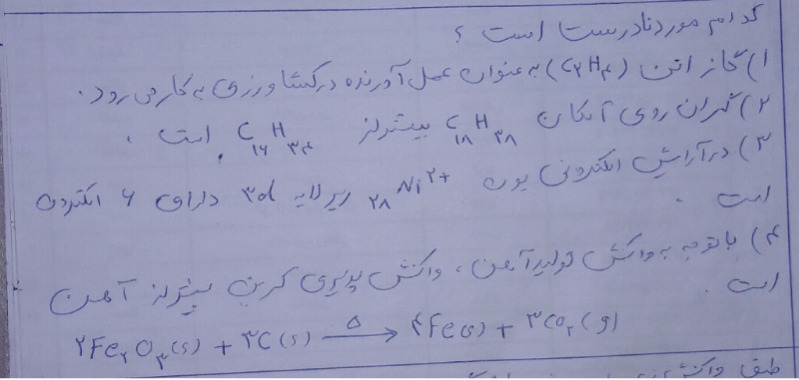 کدام مورد نادرست است ؟
۱) گاز اتن (C۲H۴) به عنوان عمل آورنده در کشاورزی به کار می رود.
۲) گران روی آلکان C۱۸H۳۸ بیشتر از C۱۶H۳۴ است .
۳) در آرایش الکترونی یون ۲۸Ni۲+ زیر لایه ۳d دارای ۶ الکترون
است .
۴) با توجه به واکنش تولید آهن ، واکنش پذیری کربن بیشتر از آهن
است .
۲Fe۲O۳(s) + ۳C(s) —Δ→ ۴Fe(s) + ۳CO۲(g)
طبق